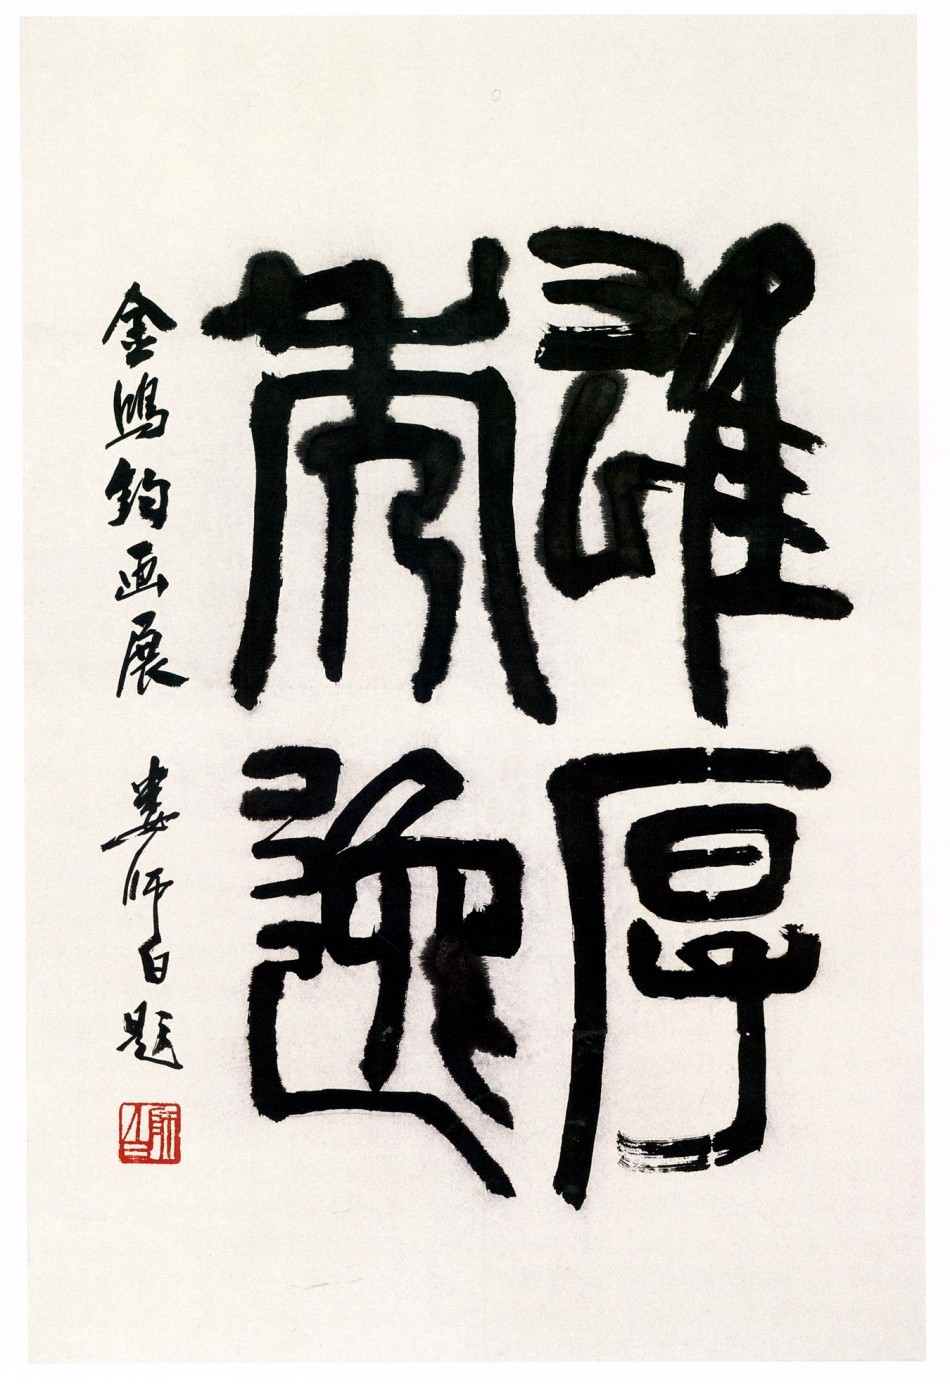 雄厚
秀逸
金鸿钧画展 娄师白题